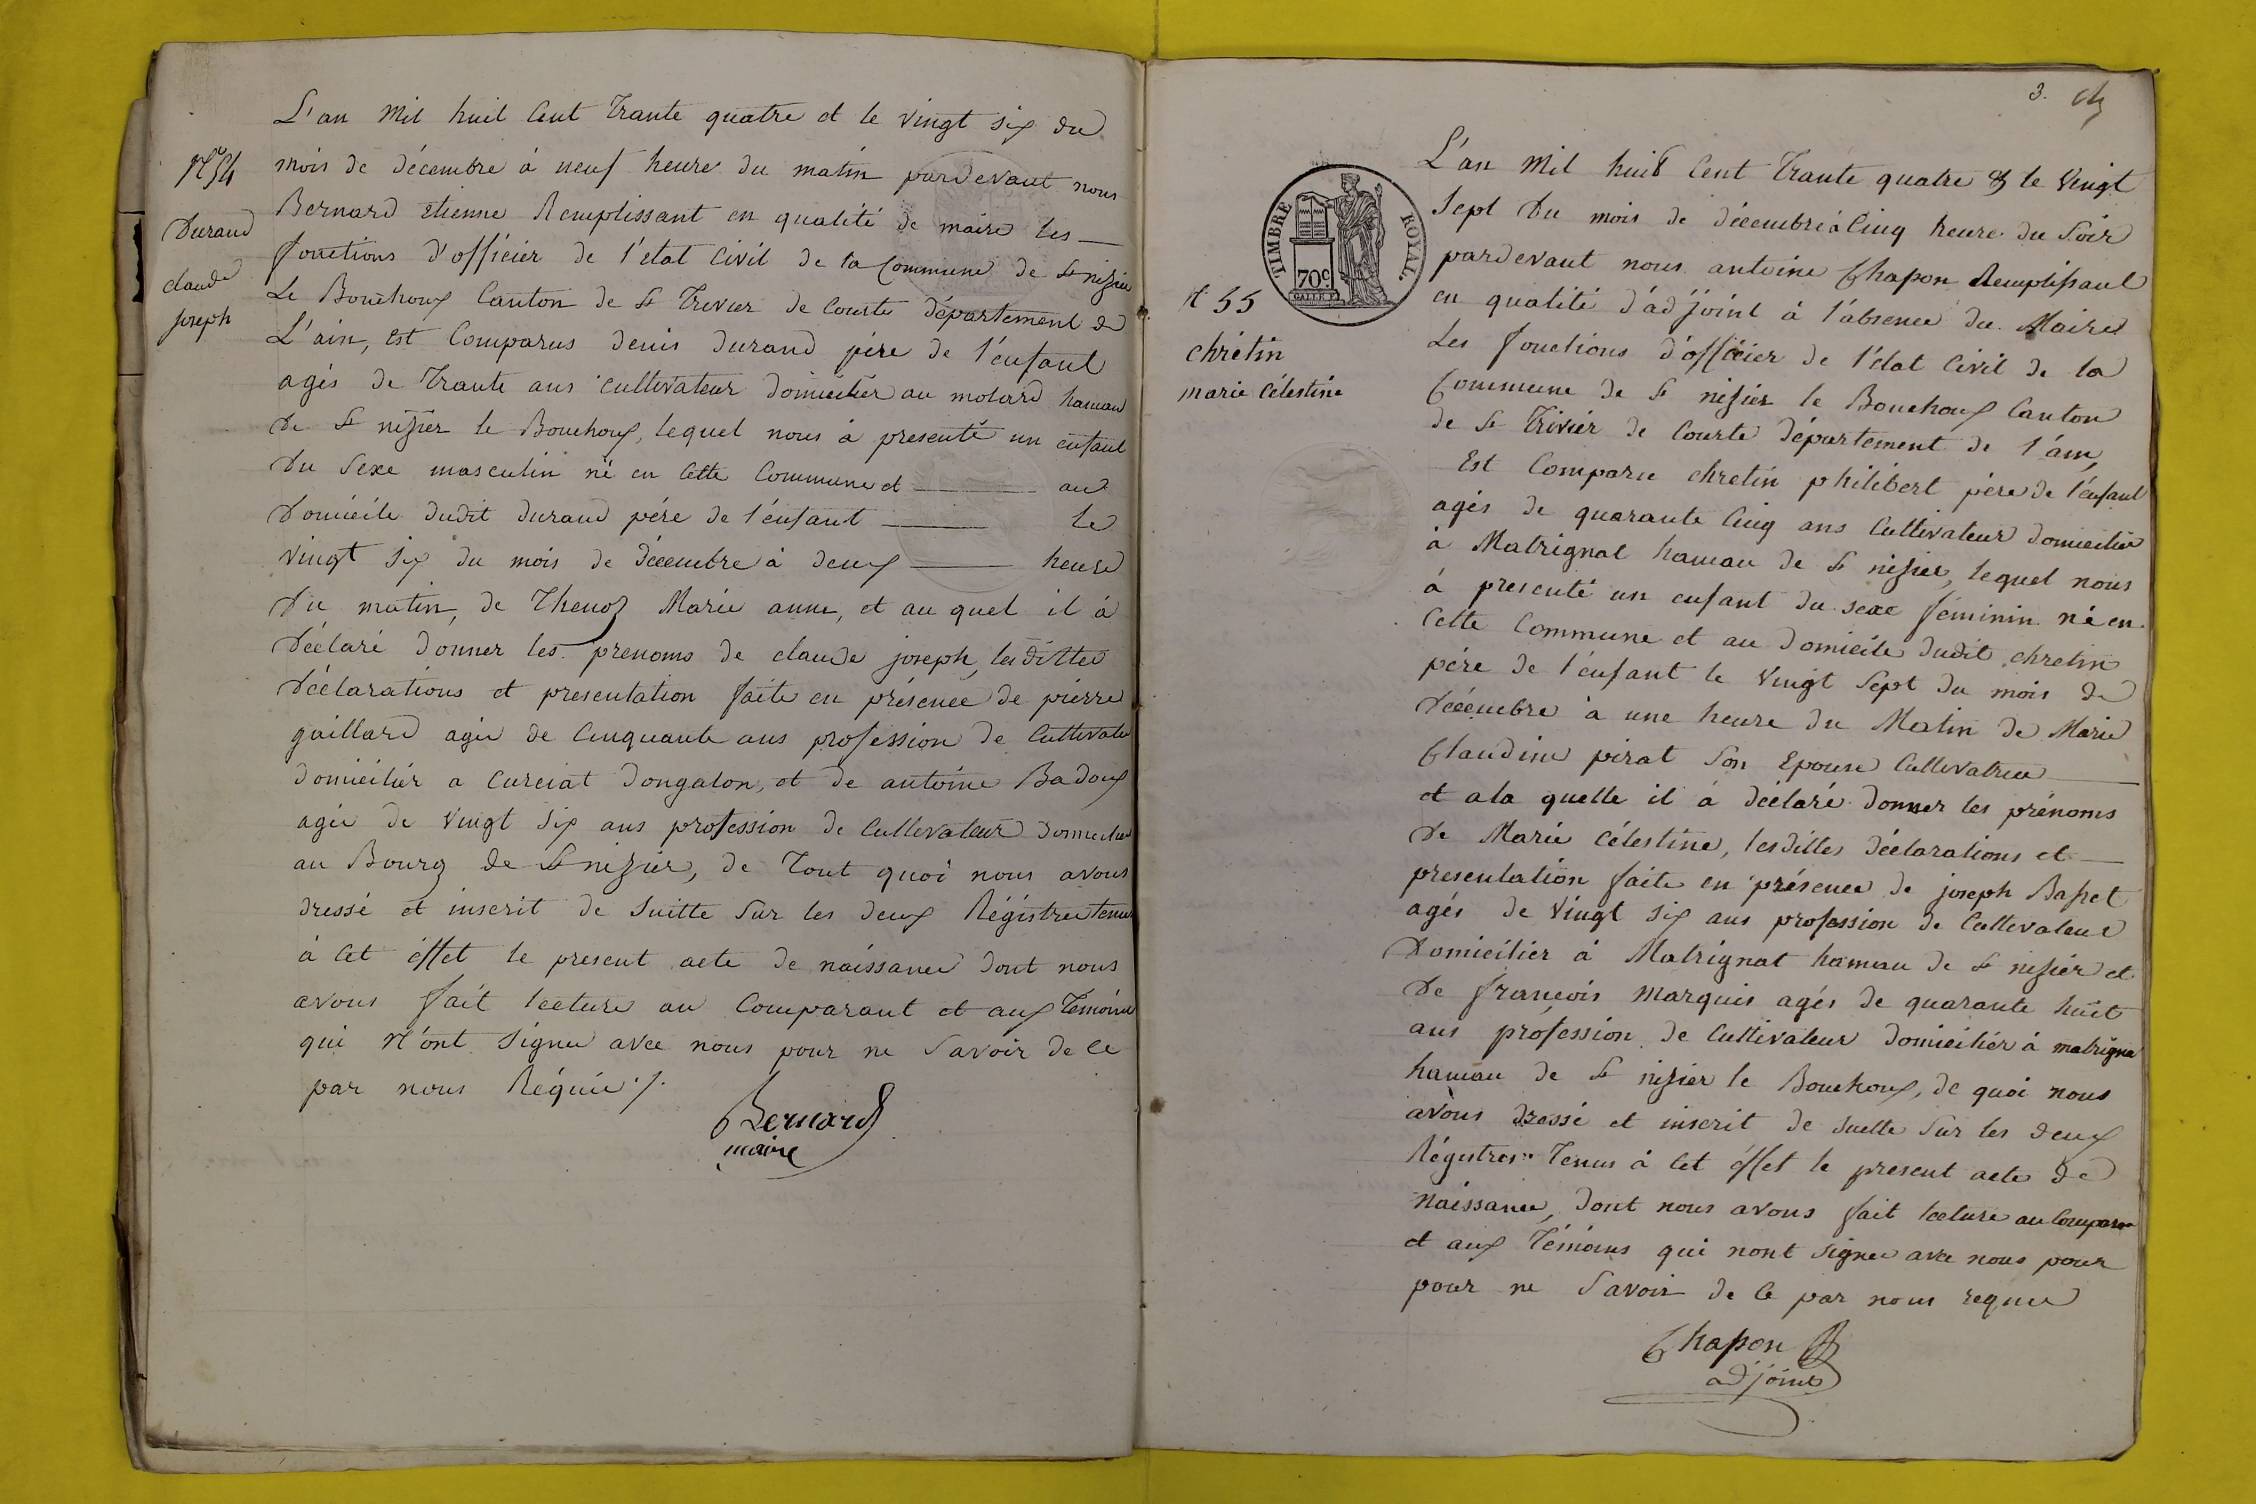 L'an mil huit cent trante quatre et le vingt six du
N° 54
mois de décembre à neuf heure du matin pardevant nous
Bernard etienne Remplissant en qualité de maire les
Durand
fonctions d'officier de l'état civil de la Commune de St nizier
claude
Le Bouchoux canton de St Trivier de Courte département de
joseph
L'ain, Est Comparus denis durand père de l'enfant
agés de trante ans cultivateur domicilier au molard hamau
de St nizier le Bouchoux, lequel nous à presenté un enfant
du sexe masculin né en cette Commune et au
domicile dudit durand pére de l'énfant le
vingt six du mois de décembre à deux heure
du matin, de Thenoz Marie anne, et au quel il à
déclaré donner les prenoms de claude joseph, lesdittes
déclarations et presentation faite en présence de pierre
gaillard agée de cinquante ans profession de Cultivate
domicilier a Curciat dongalon, et de antoine Badoux
agée de vingt six ans profession de Cultivateur domicilier
au Bourg de St nizier, de tout quoi nous avons
dressé et inscrit de suitte sur les deux Régistres tenus
à cet éffet le present acte de naissance dont nous
avons fait lecture au Comparant et aux témoins
qui n'ont signer avec nous pour ne savoir de ce
par nous Réquie ./.
Bernard
maire
3.
TIMBRE ROYAL
70c
L'an mil huit cent trante quatre & le vingt
sept du mois de décembre à cinq heure du soir
pardevant nous antoine Chapon Remplissant
N° 55
en qualité d'adjoint à l'absence du Maire
chrétin
Les fonctions d'officier de l'état civil de la
marie célestine
Commune de St nizier le Bouchoux Canton
de St Trivier de Courte département de l'ain,
Est Comparu chretin philibert père de l'énfant
agés de quarante cinq ans Cultivateur domicilier
à Matrignat hamau de St nizier, lequel nous
à presenté un enfant du sexe féminin né en
cette Commune et au domicile dudit chretin
pére de l'énfant le vingt sept du mois de
décembre à une heure du Matin de Marie
Claudine pirat son Epouse Cultivatrice
et a la quelle il à déclaré donner les prénoms
de Marie célestine, lesdittes déclarations et
presentation faite en présence de joseph Basset
agés de vingt six ans profession de Cultivateur
domicilier à Matrignat hamau de St nizier et
de françois marquis agés de quarante huit
ans profession de Cultivateur domicilier à matrigna
hamau de St nizier le Bouchoux, de quoi nous
avons dressé et inscrit de suette sur les deux
Régistres tenus à cet éffet le present acte de
naissance, dont nous avons fait lecture au Compara
et aux témoins qui nont signer avec nous pour
pour ne savoir de ce par nous requie
Chapon
adjoint